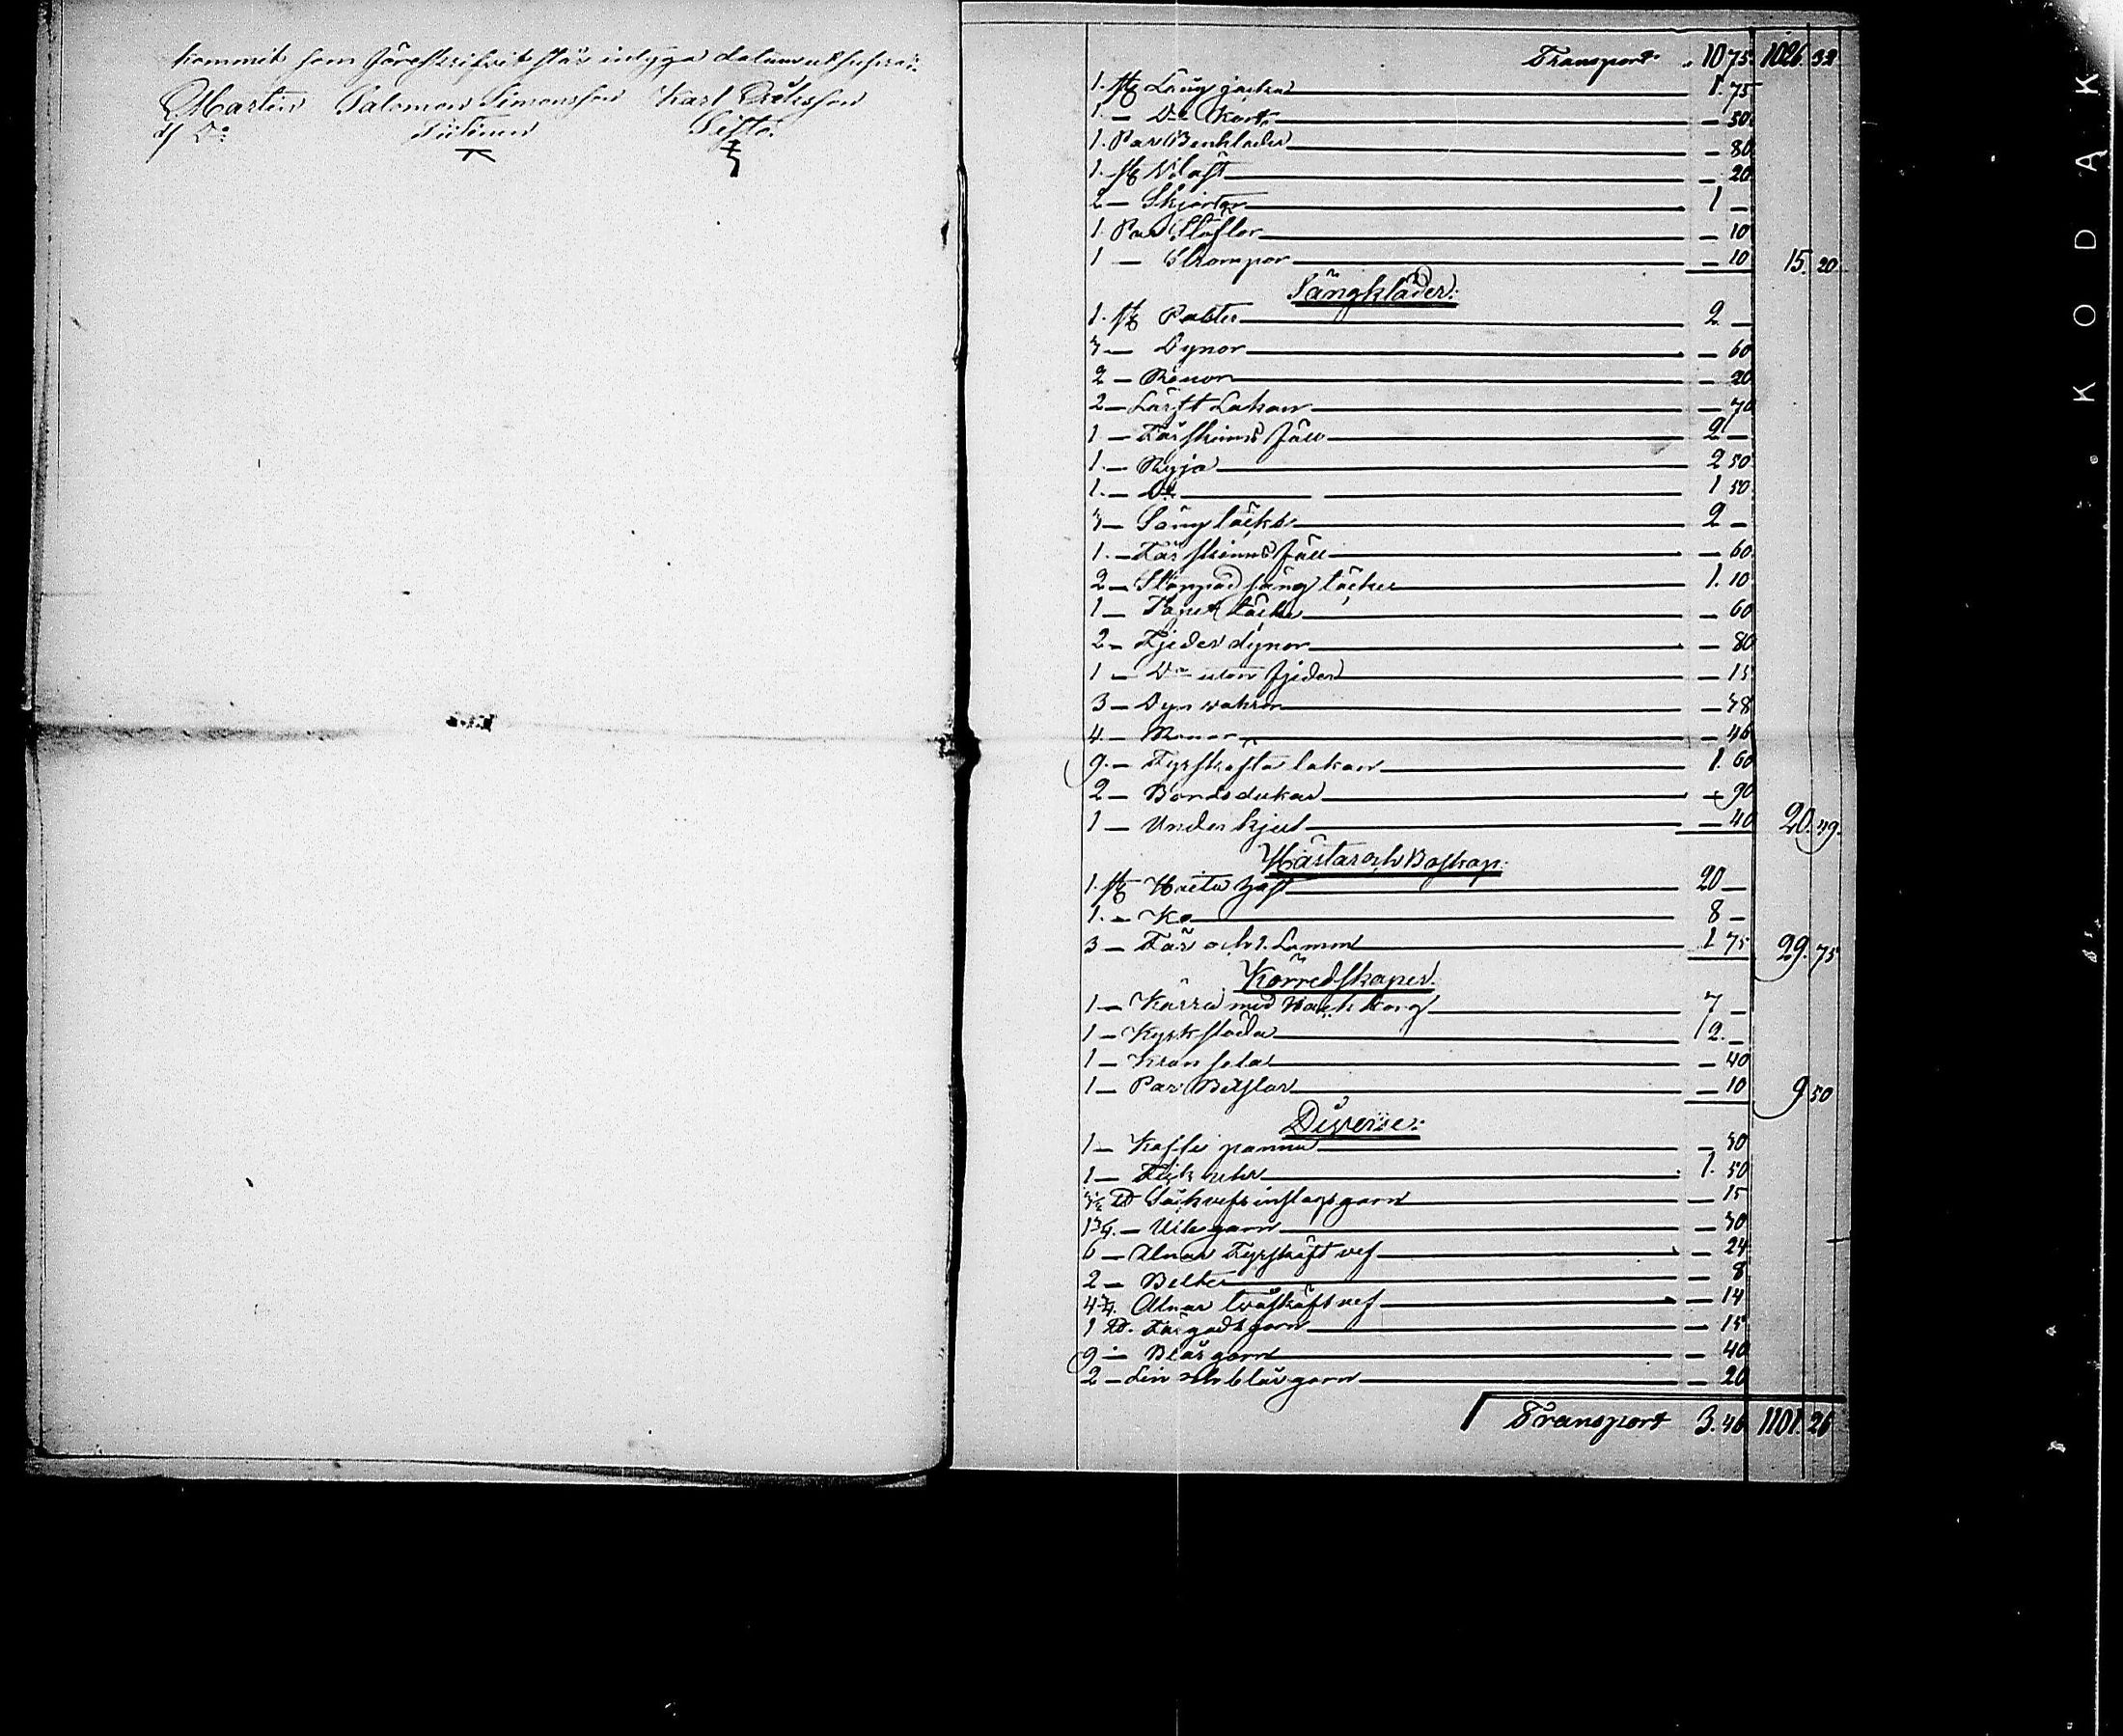 kommit som föreskrifvit står intyga datum utsupra:
Martin Salomon Simonsson Karl Eriksson
Transport 10 75. 1026. 32
1. st Lång jacka 1. 75
1. — Do Kort — 50
1. Par Benkläder — 80
1. st Väst — 20
2 — Skjortor 1 —
1. Par Stöflor — 10
1 — Strumpor — 10 15. 20
Sängkläder:
1. st Polster 2 —
3 — Dynor — 60
2 — — 20
2 — Lärft Lakan — 70
1 — Fårskinns fäll 2 —
1. — Ryja 2 50
1. — Do 1 50
3 — Sängtäcke 2 —
1. — Fårskinns fäll — 60
2 — Stoppad sängtäcken 1. 10
1 — täcke — 60
2 — Fjeder dynor — 80
1 — Do utan fjeder — 15
3 — Dyn — 38
4 — — 46
9. — Fyrskafta lakan 1. 60
2 — Bordsdukar — 90
1 — Under kjol — 40 20. 49.
Hästar och Boskap:
1. st 20 —
1. — Ko 8 —
3 — Får och 1. Lamm 1 75 29. 75
Körredskaper.
1 — Kärra med korg 7 —
1 — Kyrksläda 2. —
1 — sela — 40
1 — Par Betslar — 10 9 50
Diverse:
1 — Kaffe panna — 50
1 — Fick uhr 1. 50
inslagsgarn — 15
garn — 30
6 — Alnar Fyrskäft vef — 24
2 — Belter — 8
Alnar tvåskäft vef — 14
1 ℔. Färgadt garn — 15
9 — Blår garn — 40
2 — Lin och blår garn — 20
Transport 3. 46 1101. 26
KODAK